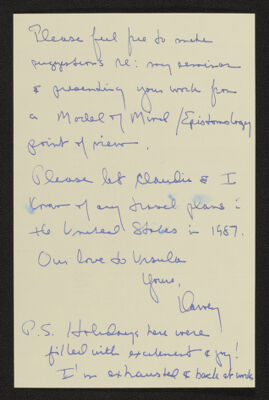 Please feel free to make
suggestions re: my seminar
& presenting your work from
a Model of Mind/Epistomology
point of view.
Please let Claudia & I
know of any travel plans in
the United States in 1987.
Our love to Ursula
Yours,
Harvey
P.S. Holidays here were
filled with excitement & joy!
I'm exhausted & back at work